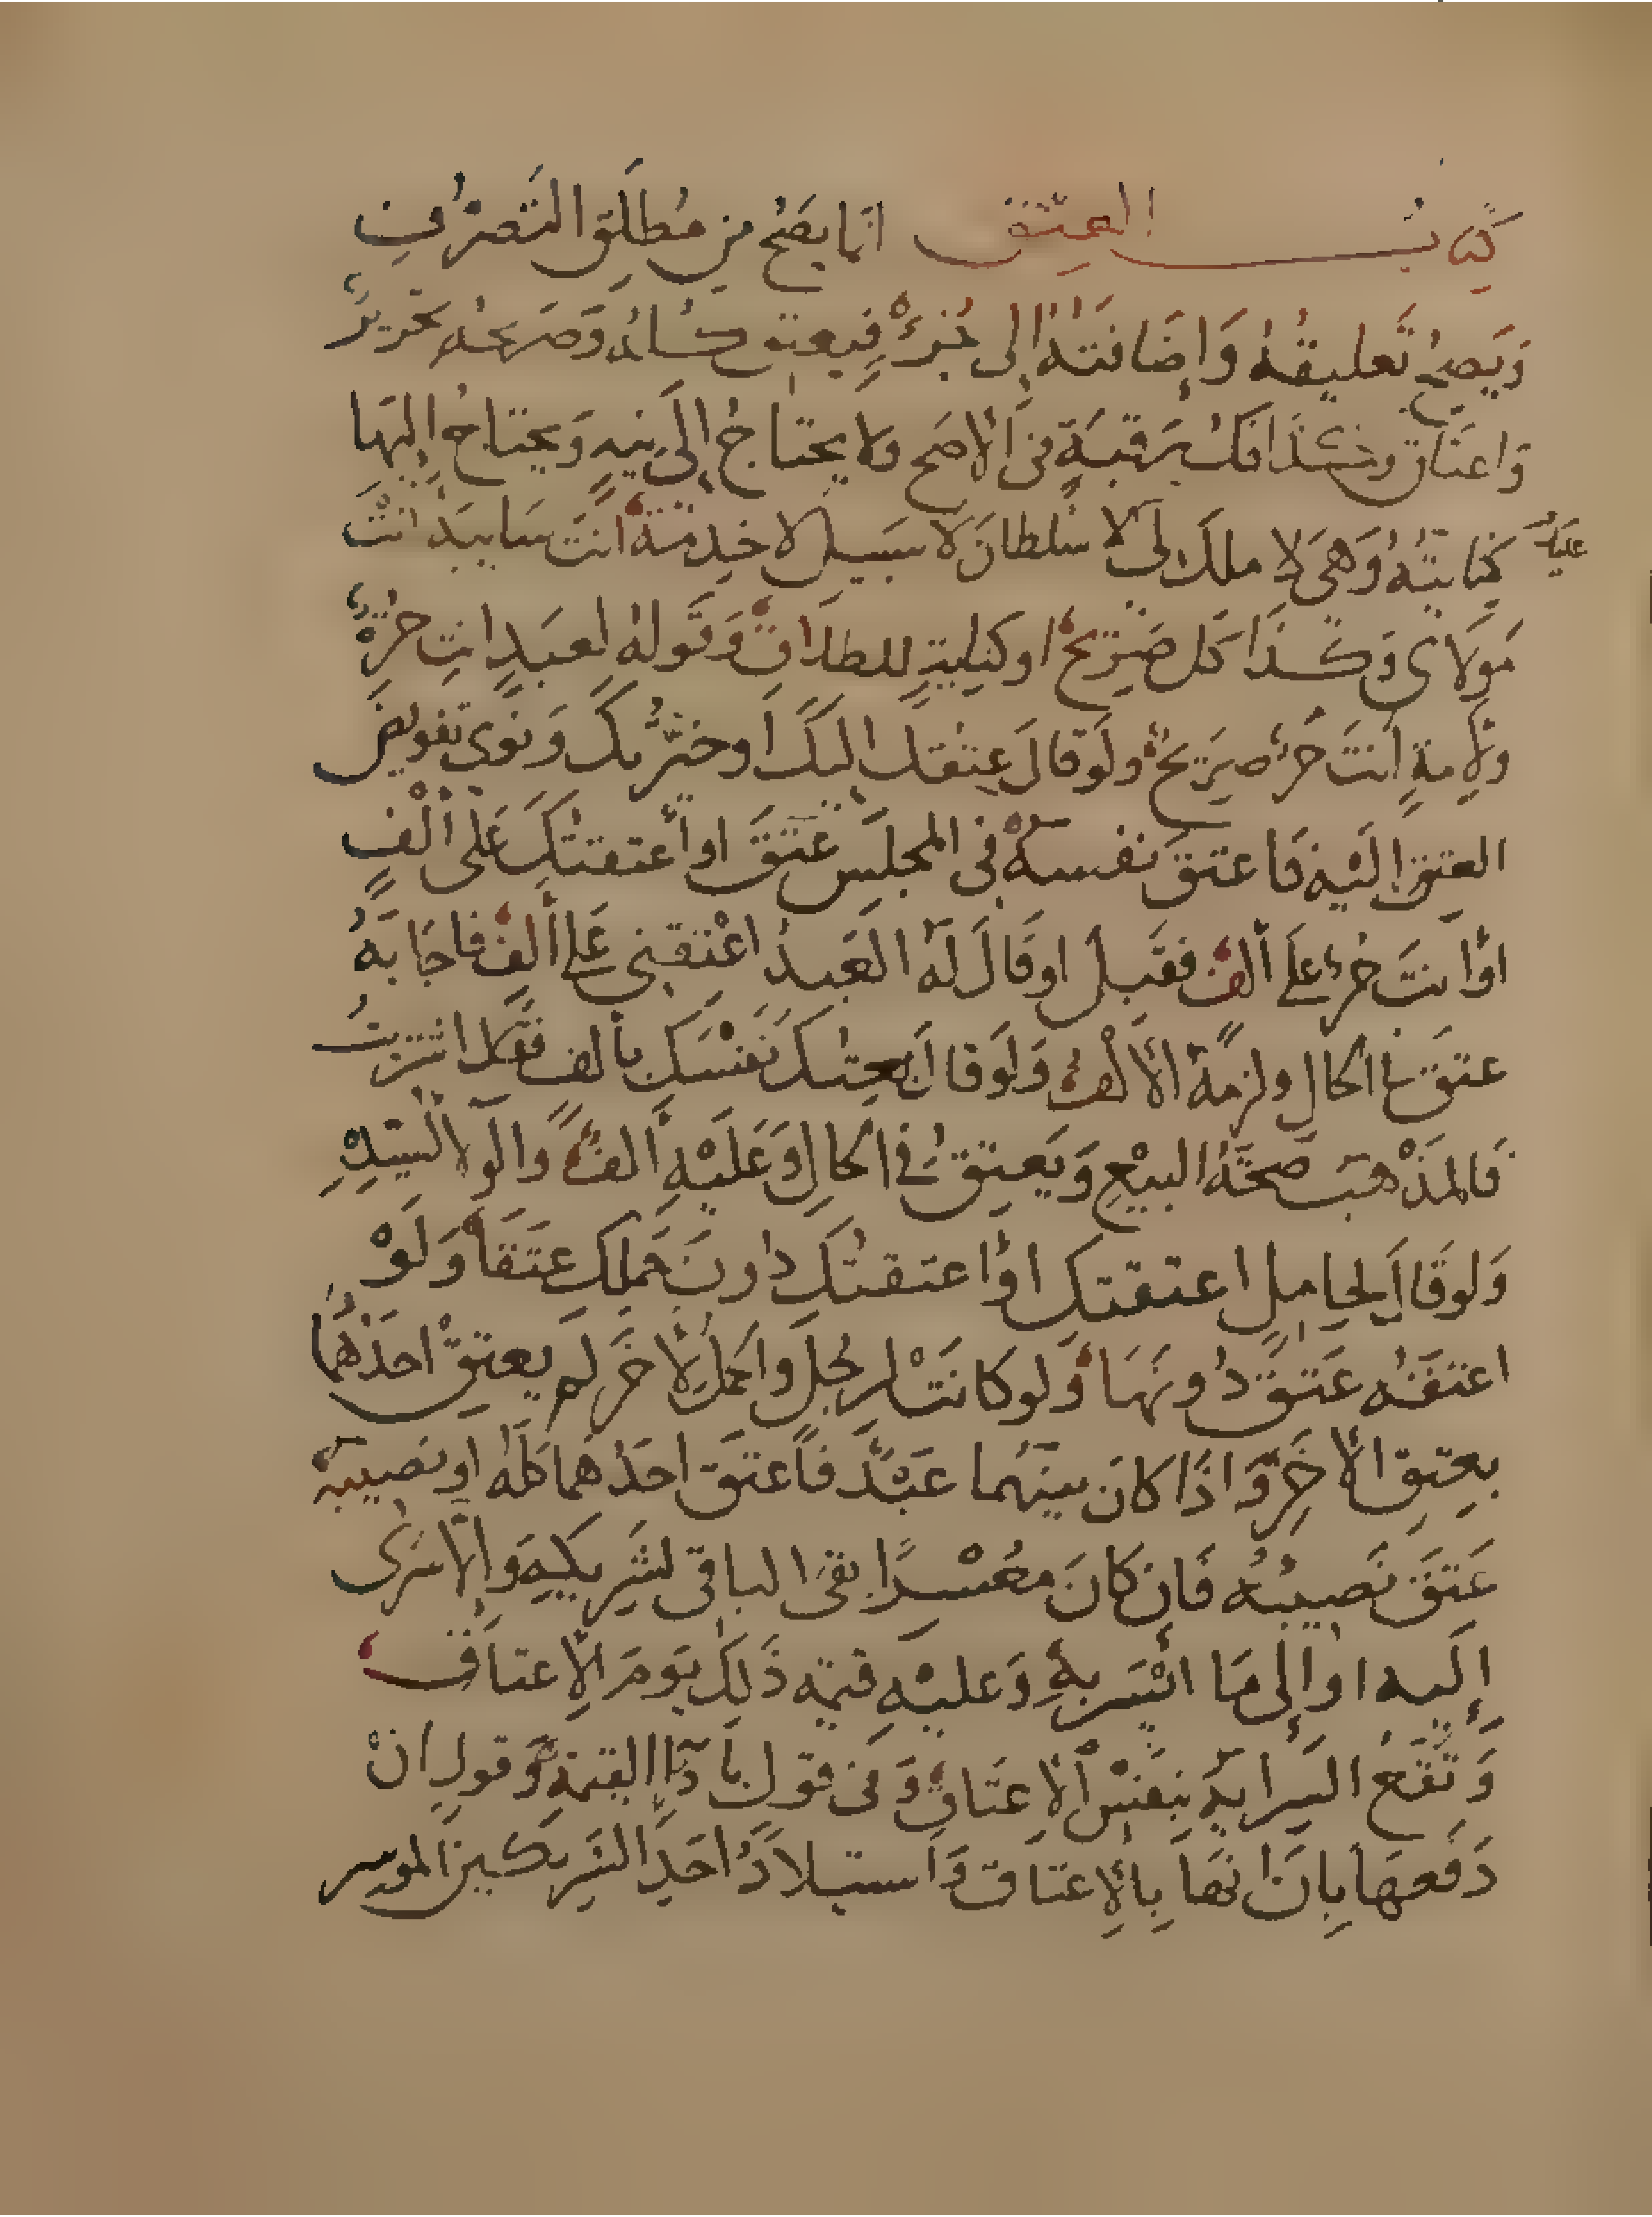 كتاب العتق انما يصح من مطلق التصرف
ويصح تعليقه وإضافته إلى جزء فيعتق كله وصريحه تحرير
واعتاق وكذا فك رقبة في الأصح ولا يحتاج إلى نية ويحتاج إليها
عليك كنايته وهي لا ملك لي لا سلطان لا سبيل لا خدمة أنت سايبة انت
مولاى وكذا كل صريح او كناية للطلاق وقوله لعبد انت حرة
ولأمة أنت حر صريح ولو قال عتقك اليك او خيرتك ونوى تفويض
العتق إليه فاعتق نفسه في المجلس عتق او أعتقتك على ألف
او أنت حر على ألف فقبل او قال له العبد اعتقني على ألف فاجابه
عتق في الحال ولزمه الألف ولو قال بعتك نفسك بألف فقال اشتريت
فالمذهب صحة البيع ويعتق في الحال وعليه ألف والولا لسيده
ولو قال لحامل اعتقتك او اعتقتك دون حملك عتقا ولو
اعتقه عتق دونها ولو كانت لرجل والحمل لآخر لم يعتق احدهما
بعتق الآخر واذا كان بينهما عبد فاعتق احدهما كله او نصيبه
عتق نصيبه فان كان معسرا بقى الباقي لشريكه والا سرى
إليه او إلى ما ايسر به وعليه قيمة ذلك يوم الإعتاق
وتقع السراية بنفس الإعتاق وفي قول بأداء القيمة وقول ان
دفعها بان انها بالإعتاق واستيلاد احد الشريكين الموسر